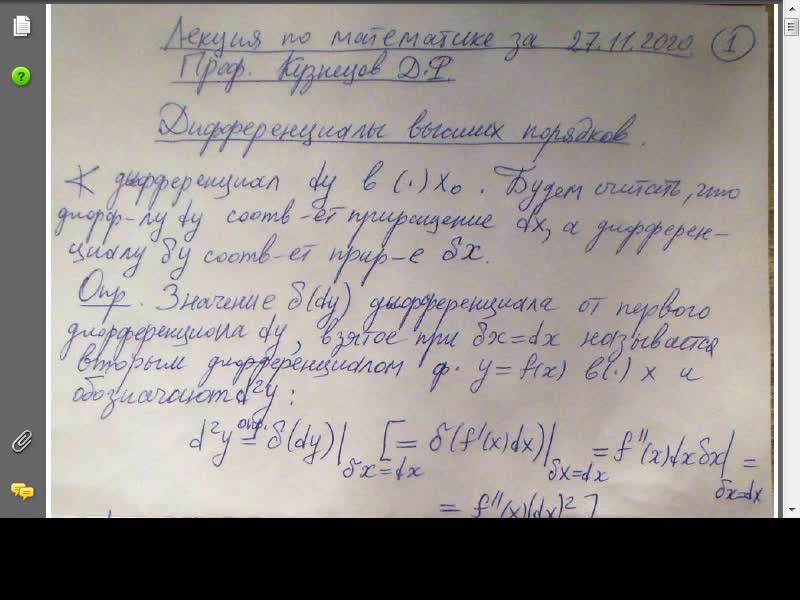 Лекция по математике за 27.11.2020 (1)
Проф. Кузнецов Д.Ф.
Дифференциалы высших порядков.
∢ дифференциал dy в (·) x₀. Будем считать, что
дифф-лу dy соотв-ет приращение dx, а дифферен-
циалу δy соотв-ет прир-е δx.
Опр. Значение δ(dy) дифференциала от первого
дифференциала dy, взятое при δx=dx называется
вторым дифференциалом ф. y=f(x) в(·) x и
обозначают d²y:
d²y опр.= δ(dy)|δx=dx [= δ(f'(x)dx)|δx=dx = f''(x)dxδx|δx=dx =
= f''(x)(dx)²]